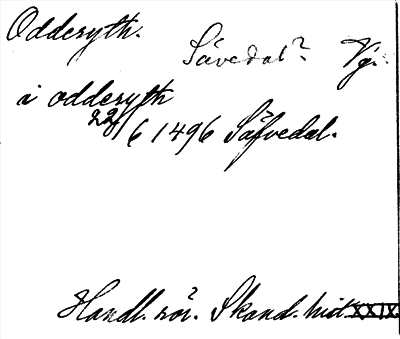 Odderyth.
Sävedal? Vg.
i odderyth
22/6 1496 Säfvedal.
Handl. rör. Skand. hist. XXIX